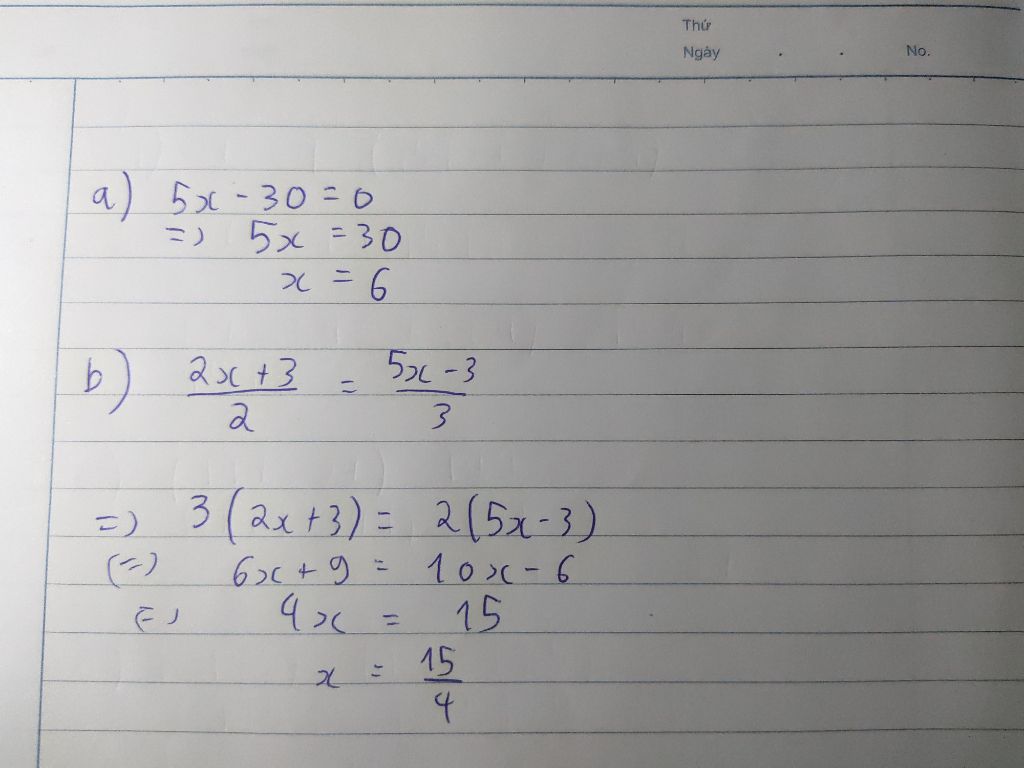 Thứ
Ngày . . No.
a) 5x - 30 = 0
=> 5x = 30
x = 6
b) (2x + 3)/2 = (5x - 3)/3
=> 3(2x + 3) = 2(5x - 3)
(=) 6x + 9 = 10x - 6
(=) 4x = 15
x = 15/4